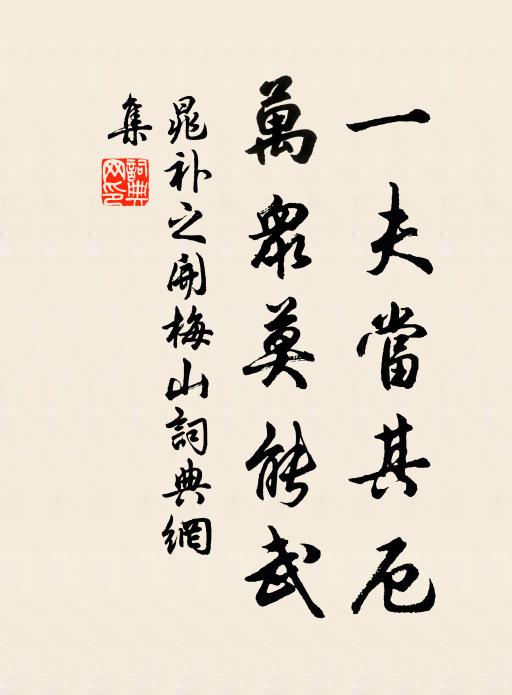 一夫當其厄
萬眾莫能武
晁补之開梅山詞典網
集
詞典網印